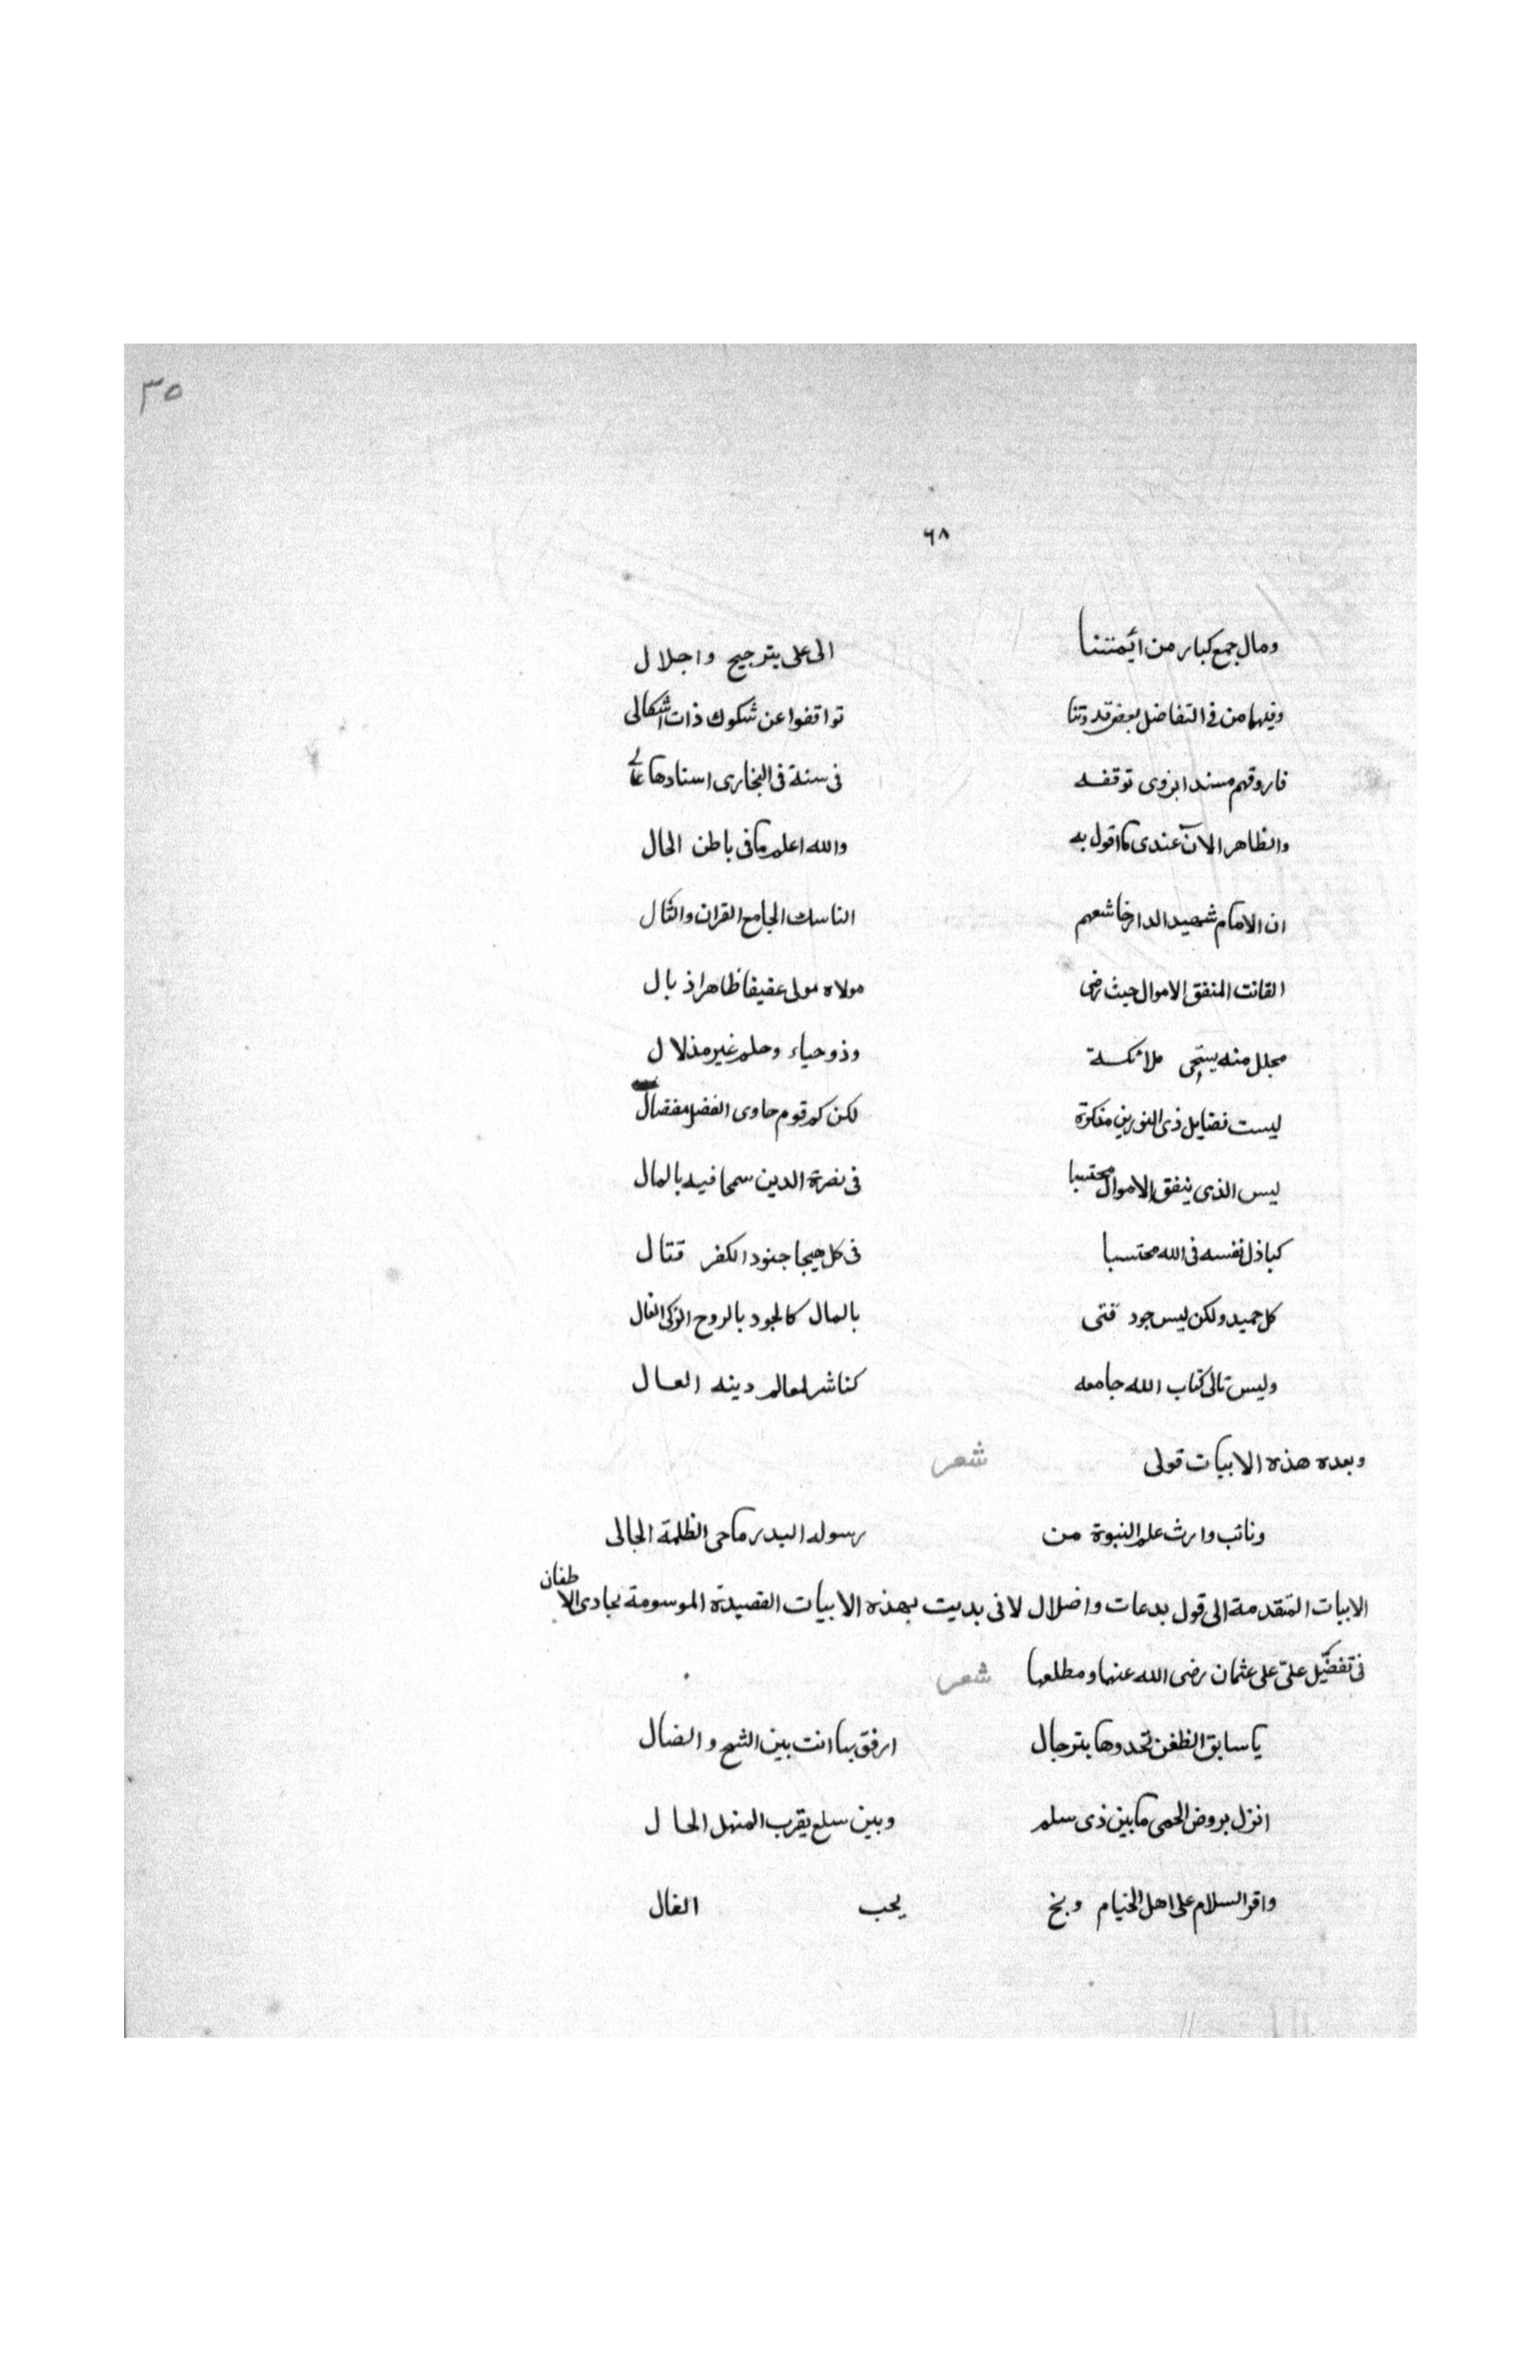 ٣٥
٦٨
ومال جمع كبار من ائمتنا الى على بترجيح واجلال
وفيهما من فى التفاضل بعض قدوتنا تواقفوا عن شكوك ذات اشكالى
فاروقهم مسند ابزوى توقفه فى سنة فى البخارى اسنادها عالى
والظاهر الآن عندى ما اقول به والله اعلم ما فى باطن الحال
ان الامام شهيد الدار خاشعهم الناسك الجامع القران والتال
القانت المنفق الاموال حيث رضى مولاه مولى عفيفا ظاهرا ذ بال
مجلل منه يستحى ملائكة وذو حياء وحلم غير مذلال
ليست فضايل ذى النورين منكرة لكن كم قوم حاوى الفضل مفضال
ليس الذى ينفق الاموال محتسبا فى نصرة الدين سمحا فيه بالمال
كباذل نفسه فى الله محتسبا فى كل هيجا جنود الكفر قتال
كل حميد ولكن ليس جود فتى بالمال كالجود بالروح الزكى الغال
وليس تالى كتاب الله جامعه كناشر لمعالم دينه العال
وبعده هذه الابيات قولى شعر
ونائب وارث علم النبوة من رسوله البدر ماحى الظلمة الجالى
الابيات المتقدمة الى قول بدعات واضلال لانى بديت بهذه الابيات القصيدة الموسومة بحادى الاظفان
فى تفضيل علىّ على عثمان رضى الله عنهما ومطلعها شعر
يا سابق الظفن تحدوها بترحال ارفق بها انت بين الشيح والضال
انزل بروض الحمى ما بين ذى سلم وبين سلع يقرب المنهل الحال
واقر السلام على اهل الخيام وبخ يحب الغال